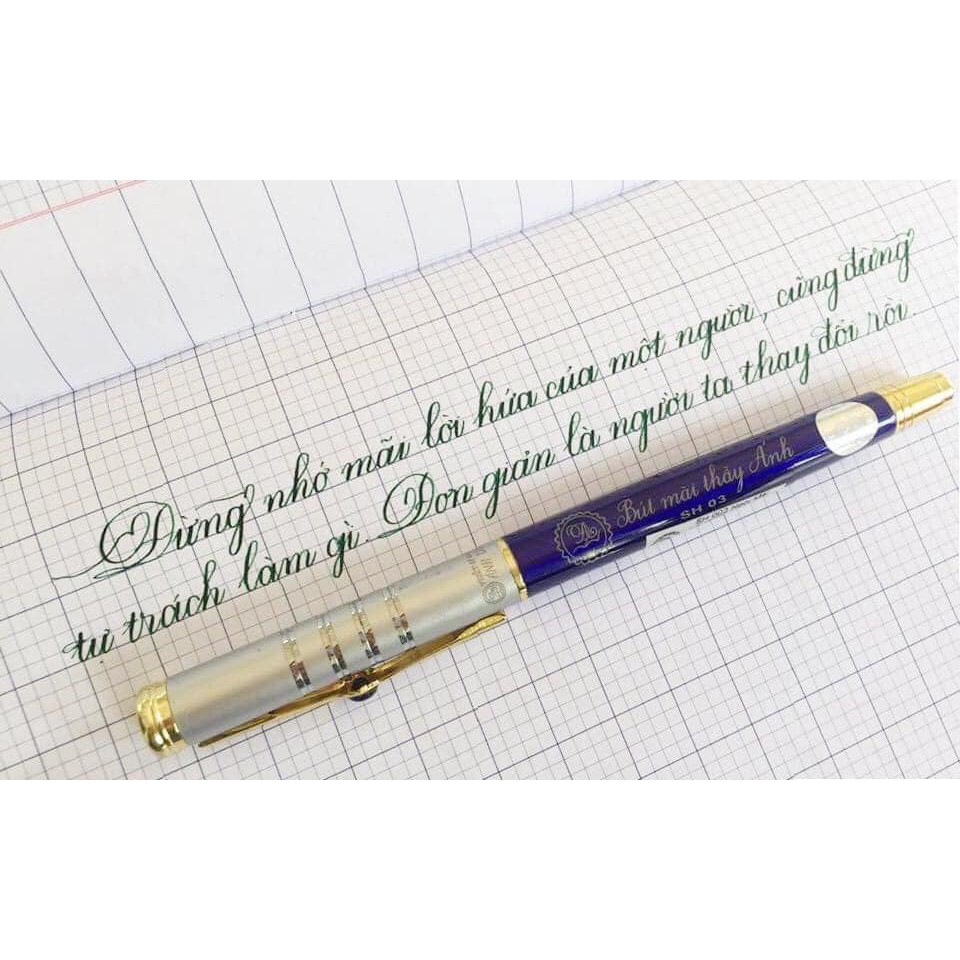 Đừng nhớ mãi lời hứa của một người, cũng đừng
tự trách làm gì. Đơn giản là người ta thay đổi rồi.
Bút mài thầy Ánh
SH 03